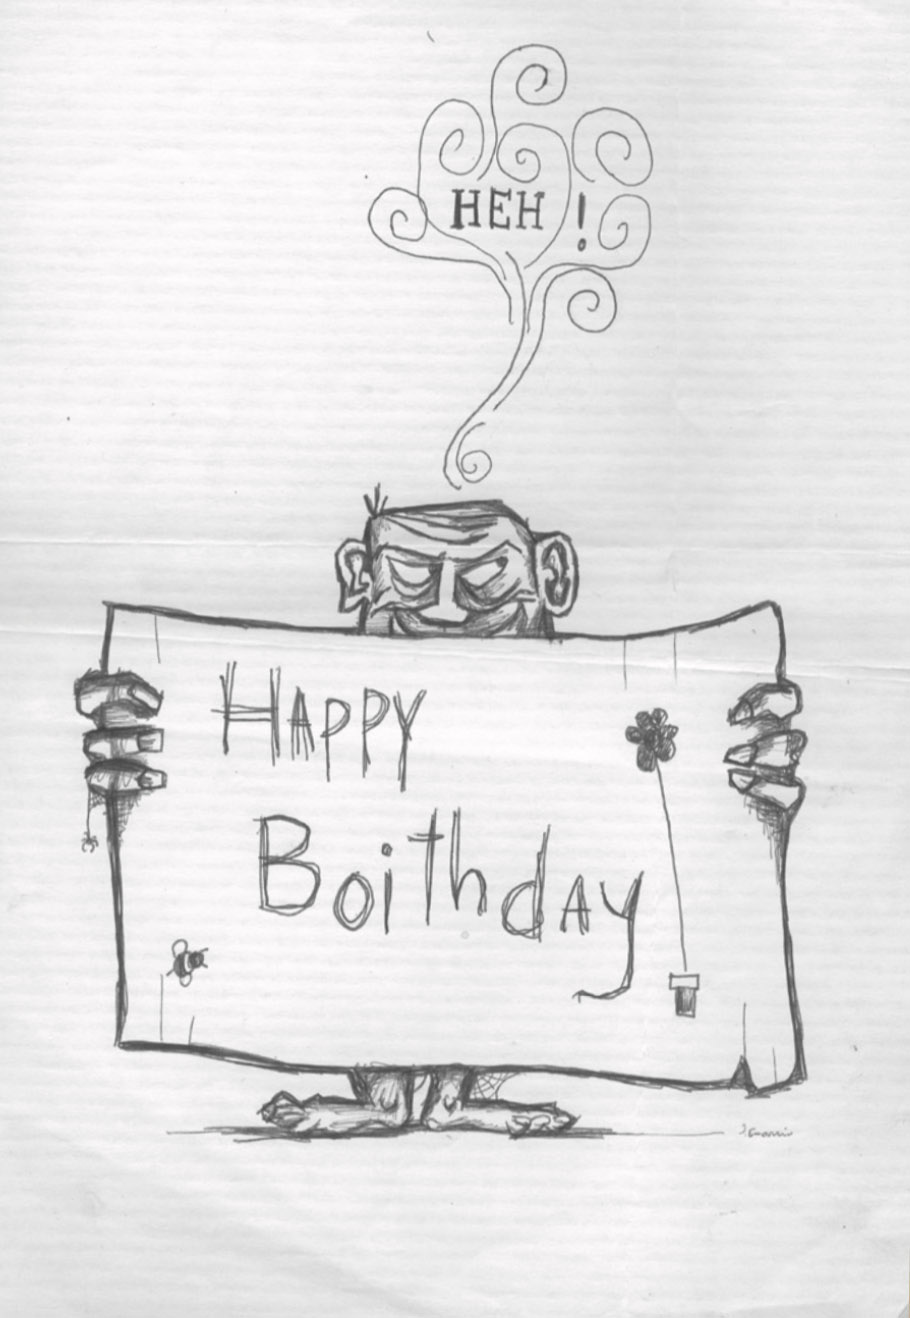 HEH !
Happy
Boithday